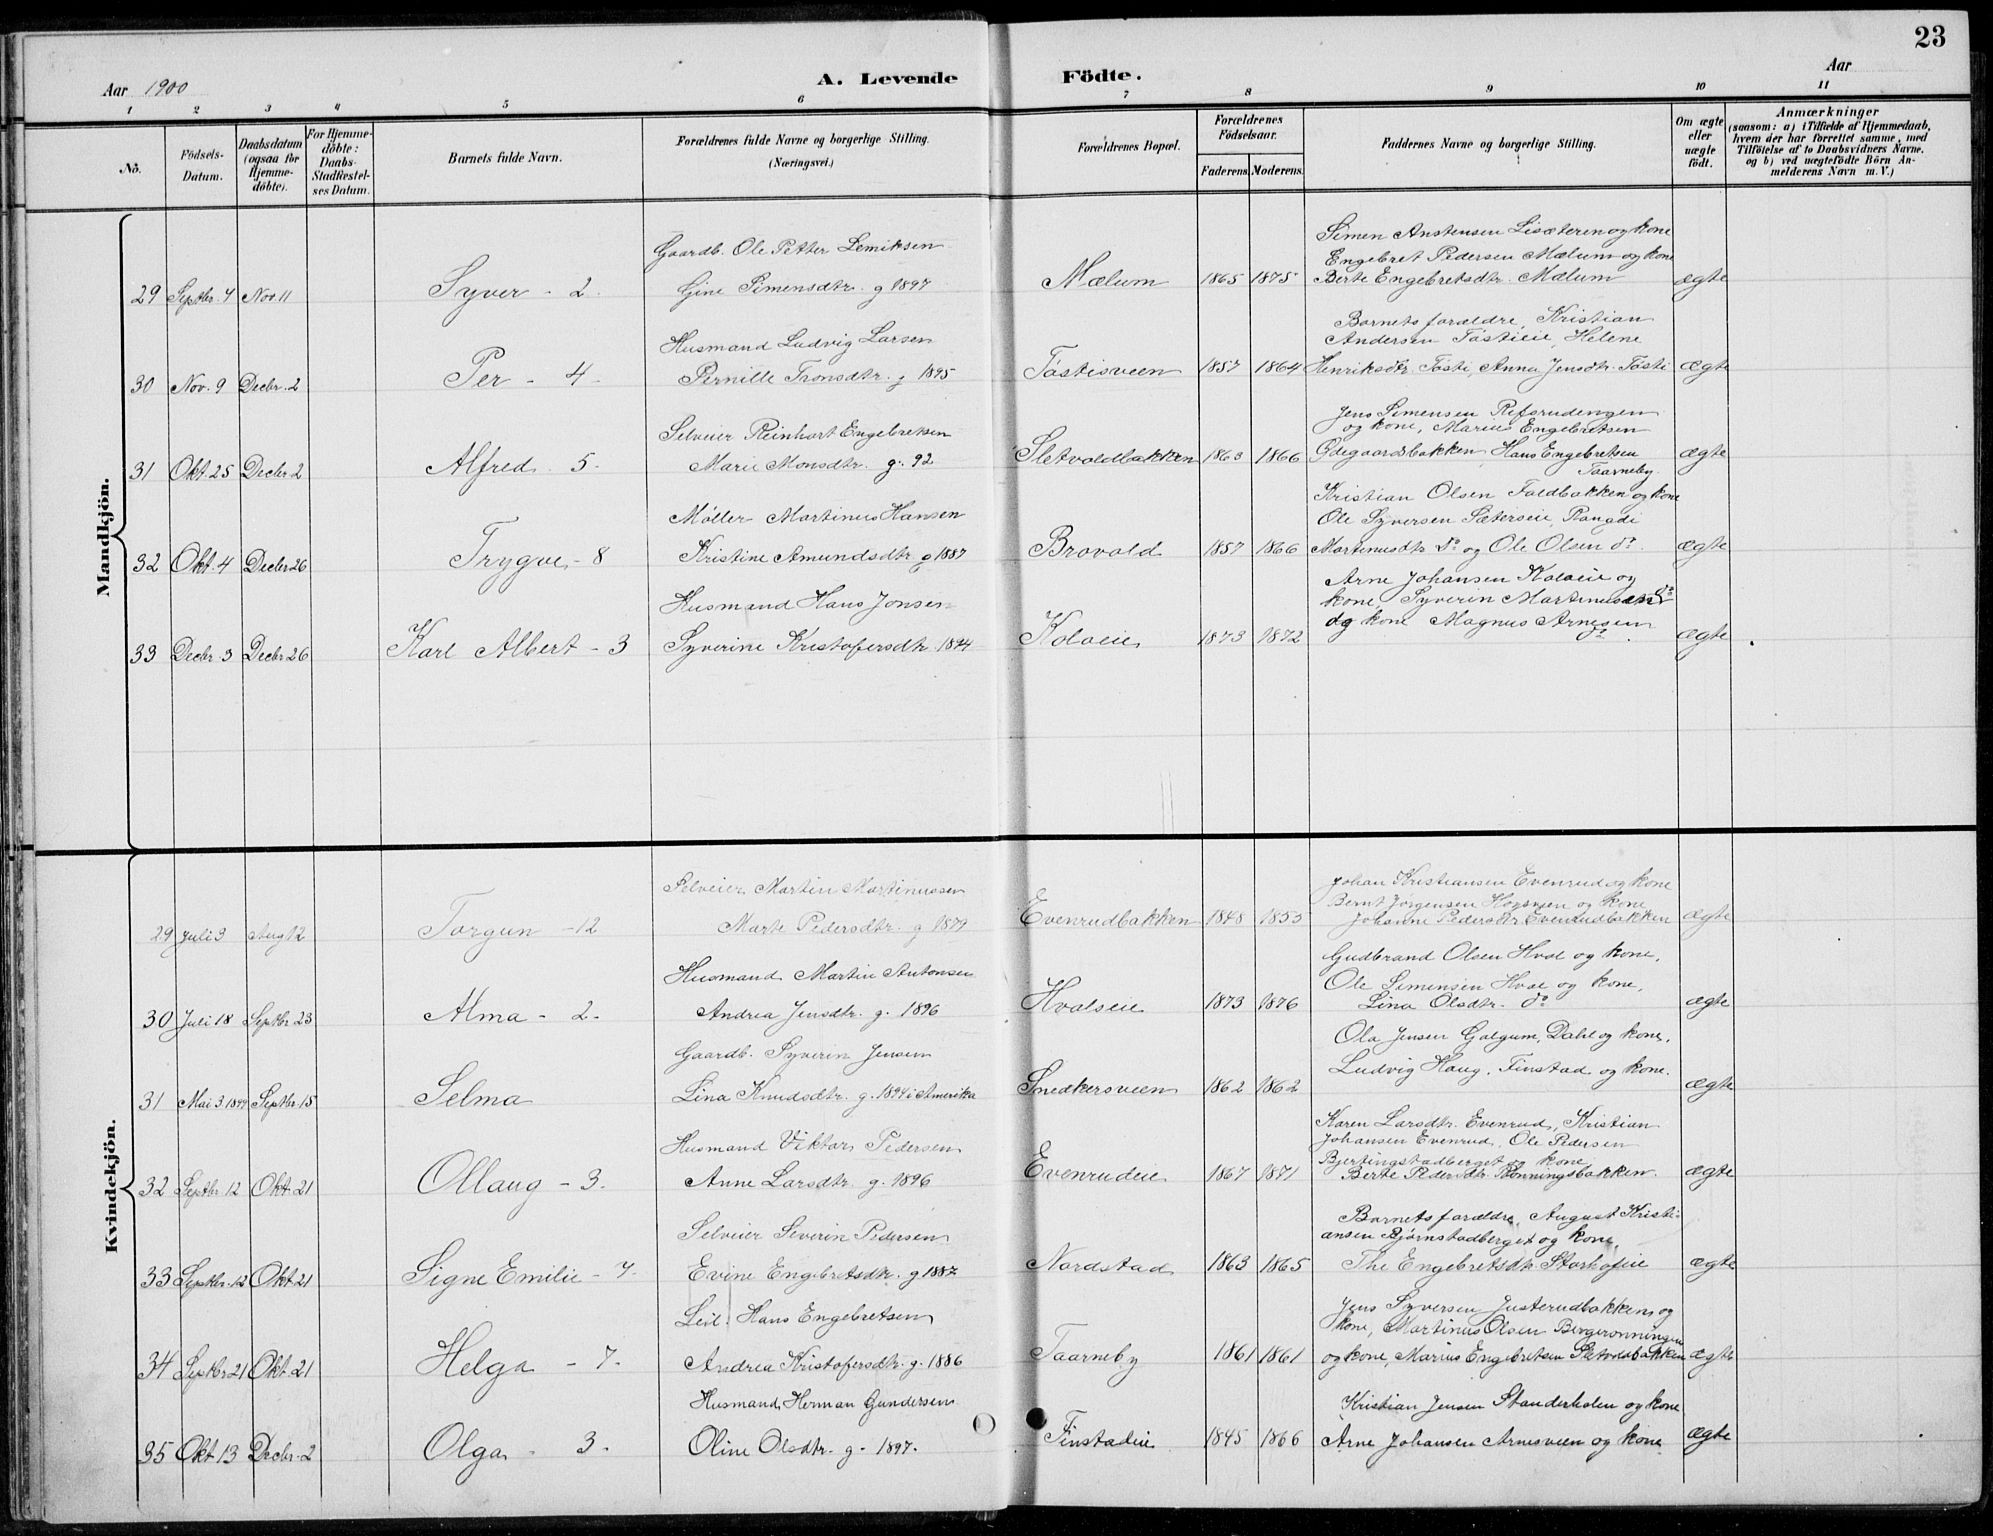 23
Aar 1900
A. Levende Födte.
Aar
1 2 3 4 5 6 7 8 9 10 11
No.
Födsels-Datum.
Daabsdatum (ogsaa for Hjemme-döbte).
For Hjemme-döbte: Daabs-Stadfæstel-ses Datum.
Barnets fulde Navn.
Forældrenes fulde Navne og borgerlige Stilling. (Næringsvei.)
Forældrenes Bopæl.
Forældrenes Födselsaar.
Faderens. Moderens.
Faddernes Navne og borgerlige Stilling.
Om ægte eller uægte födt.
Anmærkninger
(saasom: a) i Tilfælde af Hjemmedaab, hvem der har forrettet samme, med Tilföielse af to Daabsvidners Navne, og b) ved uægtefödte Börn An-melderens Navn m. V.)
Mandkjön.
Gaardb. Ole Petter Lemiksen
Simen Anstensen Lisæteren og kone
Engebret Pedersen Mælum og kone
29 Septbr. 7 Nov. 11 Syver - 2. Gine Simensdtr. g 1897 Mælum 1865 1875 Berte Engebretsdtr. Mælum ægte
Husmand Ludvig Larsen
Barnets forældre, Kristian
Andersen Tøstieie, Helene
30 Nov. 9 Decbr. 2 Per - 4 - Pernille Tronsdtr. g 1895 Tøstisveen 1857 1864 Henriksdtr. Tøsti, Anna Jensdtr. Tøsti ægte
Selveier Reinhart Engebretsen
Jens Simensen Refsrudengen
og kone, Marius Engebretsen
31 Okt. 25 Decbr. 2 Alfred. 5. Marie Monsdtr. g. 92 Sletvoldbakken 1863 1866 Ødegaardsbakken, Hans Engebretsen ægte
Taarneby.
Møller Martinus Hansen
Kristian Olsen Faldbakken og kone
Ole Syversen Sæterseie, Rangdi
32 Okt. 4 Decbr. 26 Trygve - 8 Kristine Amundsdtr. g 1887 Brovold 1857 1866 Martinusdtr. do og Ole Olsen do. ægte
Husmand Hans Jonsen
Arne Johansen Kolveie og
kone, Syverin Martinusen do
33 Decbr. 3 Decbr. 26 Karl Albert - 3 Syverine Kristofersdtr. 1894 Kolveie 1873 1872 og kone Magnus Arnesen do. ægte
Kvindekjön.
Selveier Martin Martinussen
Johan Kristiansen Evenrud og kone
Bernt Jørgensen og kone
29 Juli 3 Aug 12 Torgun - 12 Marte Pedersdtr. g 1879 Evenrudbakken 1848 1855 Johanne Pedersdtr. Evenrudbakken ægte
Husmand Martin Antonsen
Gudbrand Olsen Hval og kone,
Ole Simensen Hval og kone,
30 Juli 18 Septbr. 23 Alma - 2. Andrea Jensdtr. g. 1896 Hvalseie 1873 1876 Lina Olsdtr. do ægte
Gaardb. Syverin Jensen
Ola Jensen Galgum, Dahl og kone,
Ludvig Haug, Finstad og kone.
31 Mai 3 1899 Septbr. 15 Selma Lina Knudsdtr. g. 1894 i Amerika Snedkersveen 1862 1862 ægte
Husmand Viktor Pedersen
Karen Larsdtr. Evenrud, Kristian
Johansen Evenrud, Ole Pedersen
Bjertingstadberget og kone
32 Septbr. 12 Okt. 21 Ollaug - 3. Anne Larsdtr. g. 1896 Evenrudeie 1867 1871 Berte Pedersdtr. Rønningsbakken. ægte
Selveier Severin Pedersen
Barnets forældre, August Kristi-
ansen Bjørnstadberget og kone,
33 Septbr. 12 Okt. 21 Signe Emilie - 7. Evine Engebretsdtr. g 1887 Nordstad 1863 1865 Thr. Engebretsdtr. Storhofeie ægte
Leil. Hans Engebretsen
Jens Syversen Justerudbakken og
kone, Martinus Olsen Bergerønningen
34 Septbr. 21 Okt. 21 Helga - 7. Andrea Kristofersdtr. g. 1886 Taarneby 1861 1861 og kone, Marius Engebretsen Sletvoldbakken ægte
Husmand, Herman Gundersen
Kristian Jensen Standerholen og kone
35 Okt. 13 Decbr. 2 Olga - 3. Oline Olsdtr. g. 1897. Finstadeie 1845 1866 Arne Johansen Arnesveen og kone ægte